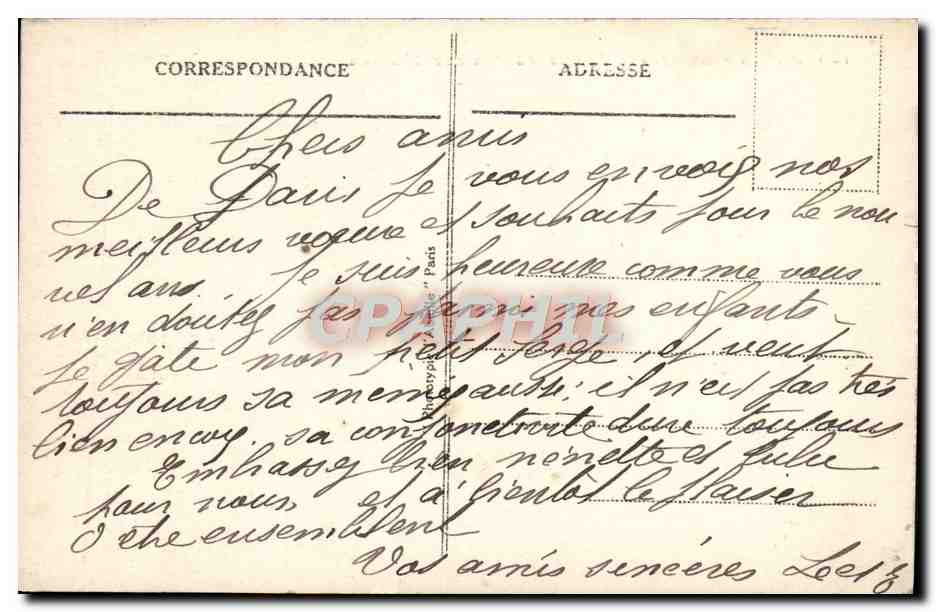 CORRESPONDANCE
ADRESSE
Chers amis
De Paris je vous envoie nos
meilleurs voeux et souhaits pour le nou
vel ans. Je suis heureuse comme vous
n'en doutez pas parmi mes enfants.
Je gâte mon petit Serge, et veut
toujours sa memé aussi; il n'est pas très
bien encor, sa conjonctivite dure toujours
Embrassez bien nénette et Lulu
pour nous, et à bientôt le plaisir
d etre ensemblent
Vos amis sincères L et E
Phototypie "A. Paris
CPAPHIL